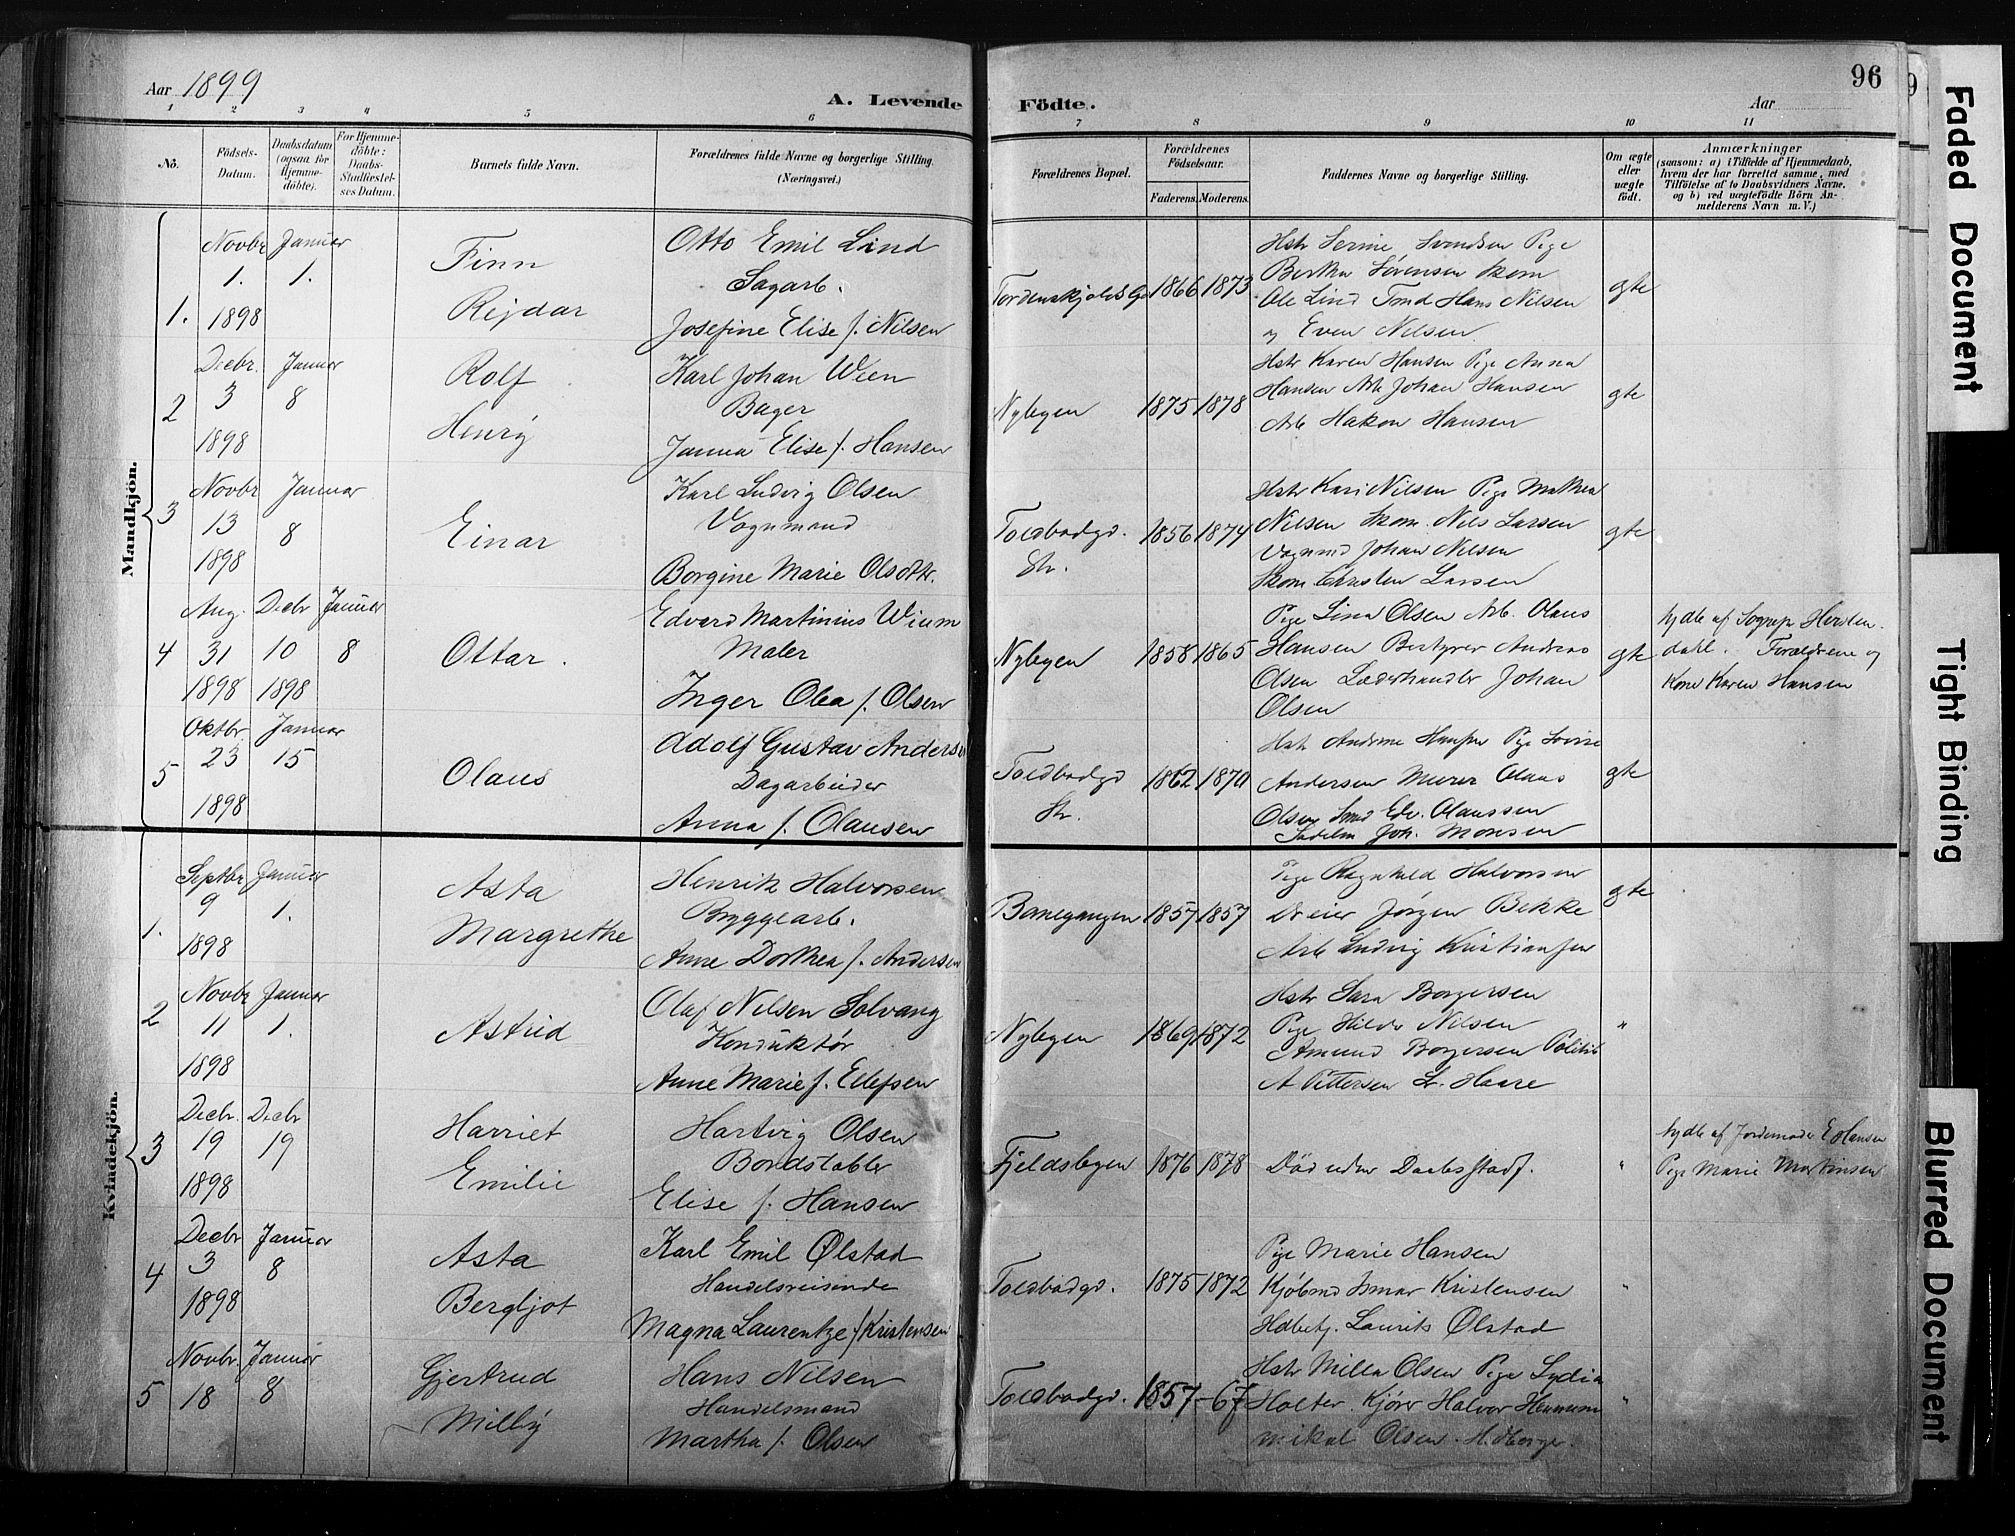 Aar 1899
A. Levende Födte.
Aar
96
1 2 3 4 5 6 7 8 9 10 11
Nö.
Födsels-Datum.
Daabsdatum (ogsaa for Hjemme-döbte).
For Hjemme-döbte: Daabs-Stadfæstel-ses Datum.
Barnets fulde Navn.
Forældrenes fulde Navne og borgerlige Stilling. (Næringsvei.)
Forældrenes Bopæl.
Forældrenes Födselsaar.
Faderens. Moderens.
Faddernes Navne og borgerlige Stilling.
Om ægte eller uægte födt.
Anmærkninger
(saasom: a) i Tilfælde af Hjemmedaab,
hvem der har forrettet samme, med
Tilföielse af to Daabsvidners Navne.
og b) ved uægtefödte Börn An-
melderens Navn m. V.)
Mandkjön.
1.
Novbr 1. 1898
Januar 1.
Finn
Reidar
Otto Emil Lind
Sagarb.
Josefine Elise f. Nilsen
Tordenskjoldsgd
1866 1873
Hstr Serine Svendsen Pige
Bertha Sörensen Skom
Ole Lind Tmd Hans Nilsen
og Even Nilsen
gte
2
Decbr. 3 1898
Januar 8
Rolf
Henry
Karl Johan Wien
Bager
Janna Elise f. Hansen
Nybyen
1875 1878
Hstr Karen Hansen Pige Anna
Hansen Arb Johan Hansen
Arb Hakon Hansen
gte
3
Novbr 13 1898
Januar 8
Einar
Karl Ludvig Olsen
Vognmand
Borgine Marie Olsdtr.
Toldbodgd.
Str.
1856 1874
Hstr Kari Nilsen Pige Mathea
Nilsen Skom. Nils Larsen
Vognmd Johan Nilsen
Skom Christen Larsen
gte
4
Aug. 31 1898
Decbr 10 1898
Januar 8
Ottar.
Edvard Martinius Wium
Maler
Inger Olea f. Olsen
Nybyen
1858 1865
Pige Lina Olsen Arb. Olaus
Hansen Bestyrer Andreas
Olsen Læderhandler Johan
Olsen
gte
hjdb af Sognepr
dahl. Forældrene og
Kone Karen Hansen
5
Oktbr. 23 1898
Januar 15
Olaus
Adolf Gustav Andersen
Dagarbeider
Anna f. Olausen
Toldbodgd
Str.
1862 1870
Hstr Andrine Pige Lovise
Andersen Murer Olaus
Olsen Smed Edv. Olaussen
Joh. Monsen
gte
Kvindekjön.
1.
Septbr 9 1898
Januar 1.
Asta
Margrethe
Henrik Halvorsen
Bryggearb.
Anne Dorthea f. Andersen
Banegangen
1857 1857
Pige Ragnhild Halvorsen
Dreier Jörgen Bekke
Arb Ludvig Kristiansen
gte
2
Novbr 11 1898
Januar 1.
Astrid
Olaf Nilsen Solvang
Konduktör
Anne Marie f. Ellefsen
Nybyen
1869 1872
Hstr Sara Borgersen
Pige Hilda Nilsen
Amund Borgersen Politib
A Pettersen
"
3
Decbr. 19 1898
Decbr 19
Harriet
Emilie
Hartvig Olsen
Bordstabler
Elise f. Hansen
Fjeldsbyen
1876 1878
Död uden Daabsstadf.
"
hjdb af Jordemoder E Hansen
Pige Marie Martinsen
4
Decbr 3 1898
Januar 8
Asta
Bergljot
Karl Emil Ølstad
Handelsreisende
Magna Laurentze f Kristensen
Toldbodgd.
1875 1872
Pige Marie Hansen
Kjöbmd Ismar Kristensen
Hdbetj. Laurits Ølstad
"
5
Novbr. 18
Januar 8
Gjertrud
Milly
Hans Nilsen
Handelsmand
Martha f. Olsen
Toldbodgd.
1857 - 67
Hstr Milla Olsen Pige Lydia
Holter Kjörer Halvor
Mikal Olsen.
"
Faded Document
Tight Binding
Blurred Document